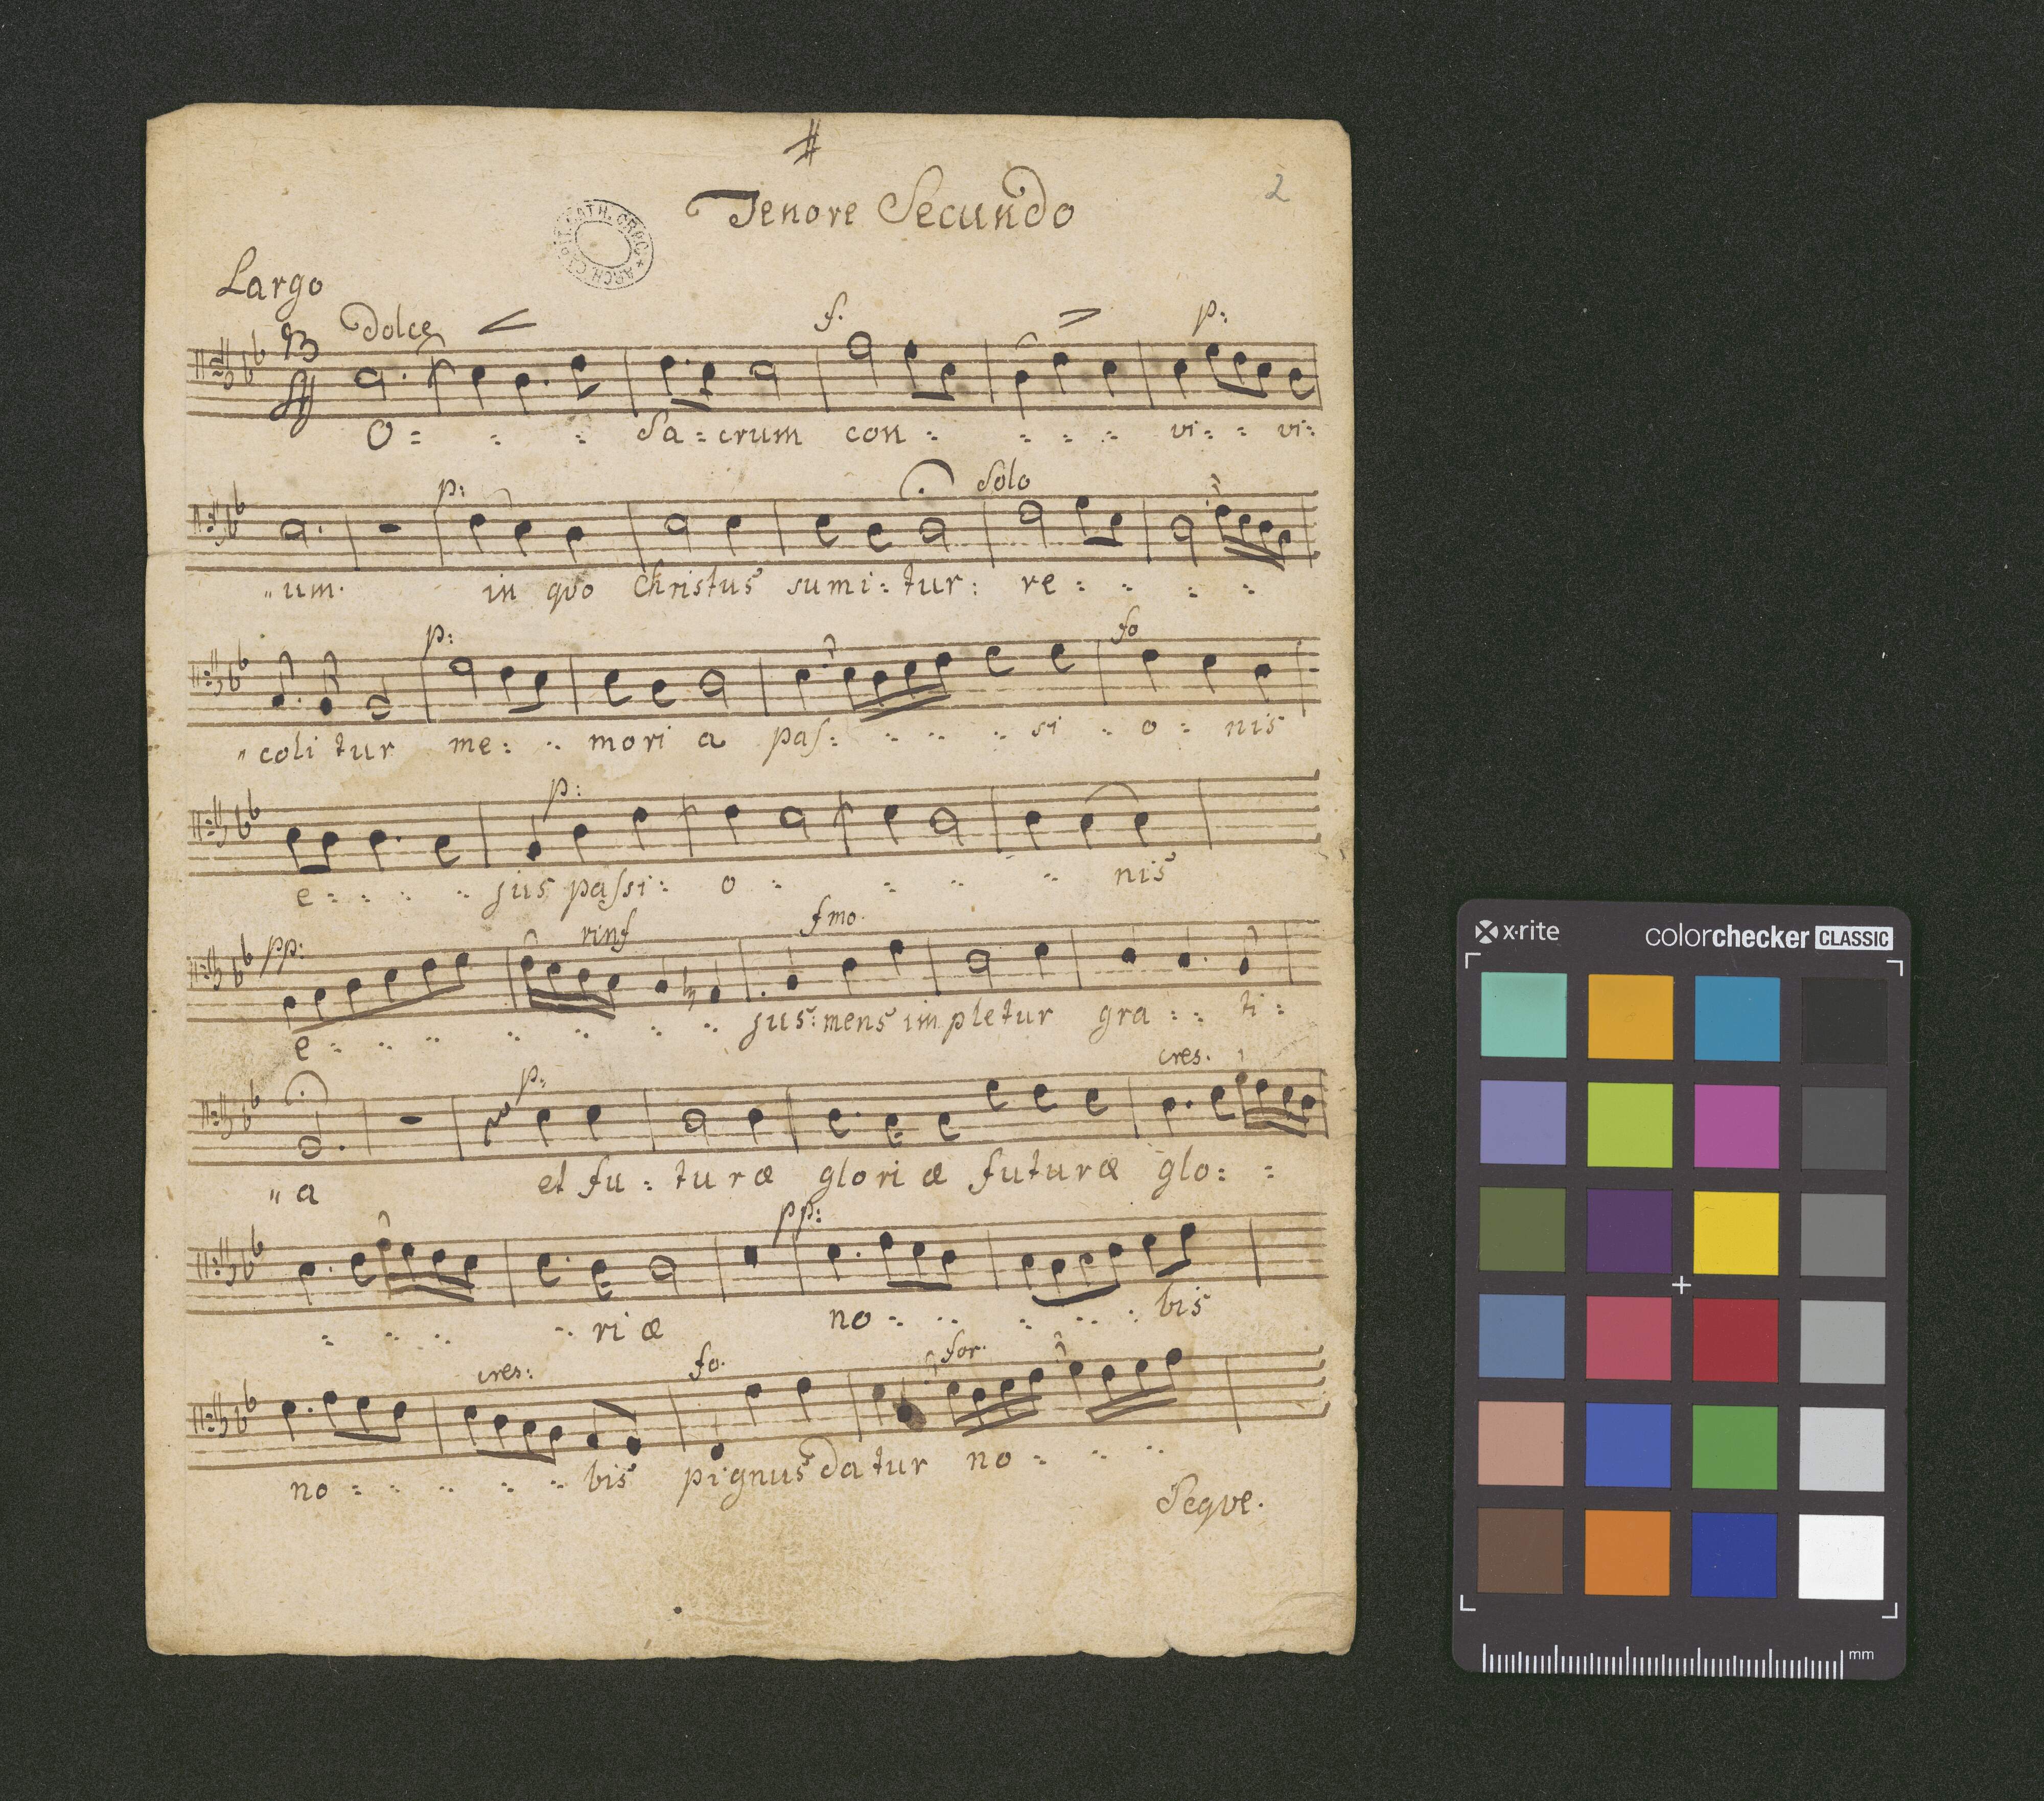 2
Tenore Secundo
ARCH. CAPIT. CATH. CREC.
Largo
Dolce f. p:
O = - = Sa = crum con = = = = vi = = vi:
p: Solo
"um. in quo Christus sumi: tur: re = = = =
p: fo
"coli tur me: = mori a pas: = = = si = o = nis
p:
e = = = = sus passi: o = = = = nis
pp: rinf fmo.
e = = = = = = = sus: mens impletur gra = = ti =
p: cres.
"a et fu = turæ glori æ futuræ glo: =
pp:
= = = = ri æ no = = = = = bis
cres: fo. for.
no = = = = = bis pignus datur no = = =
Seque.
x·rite colorchecker CLASSIC
mm